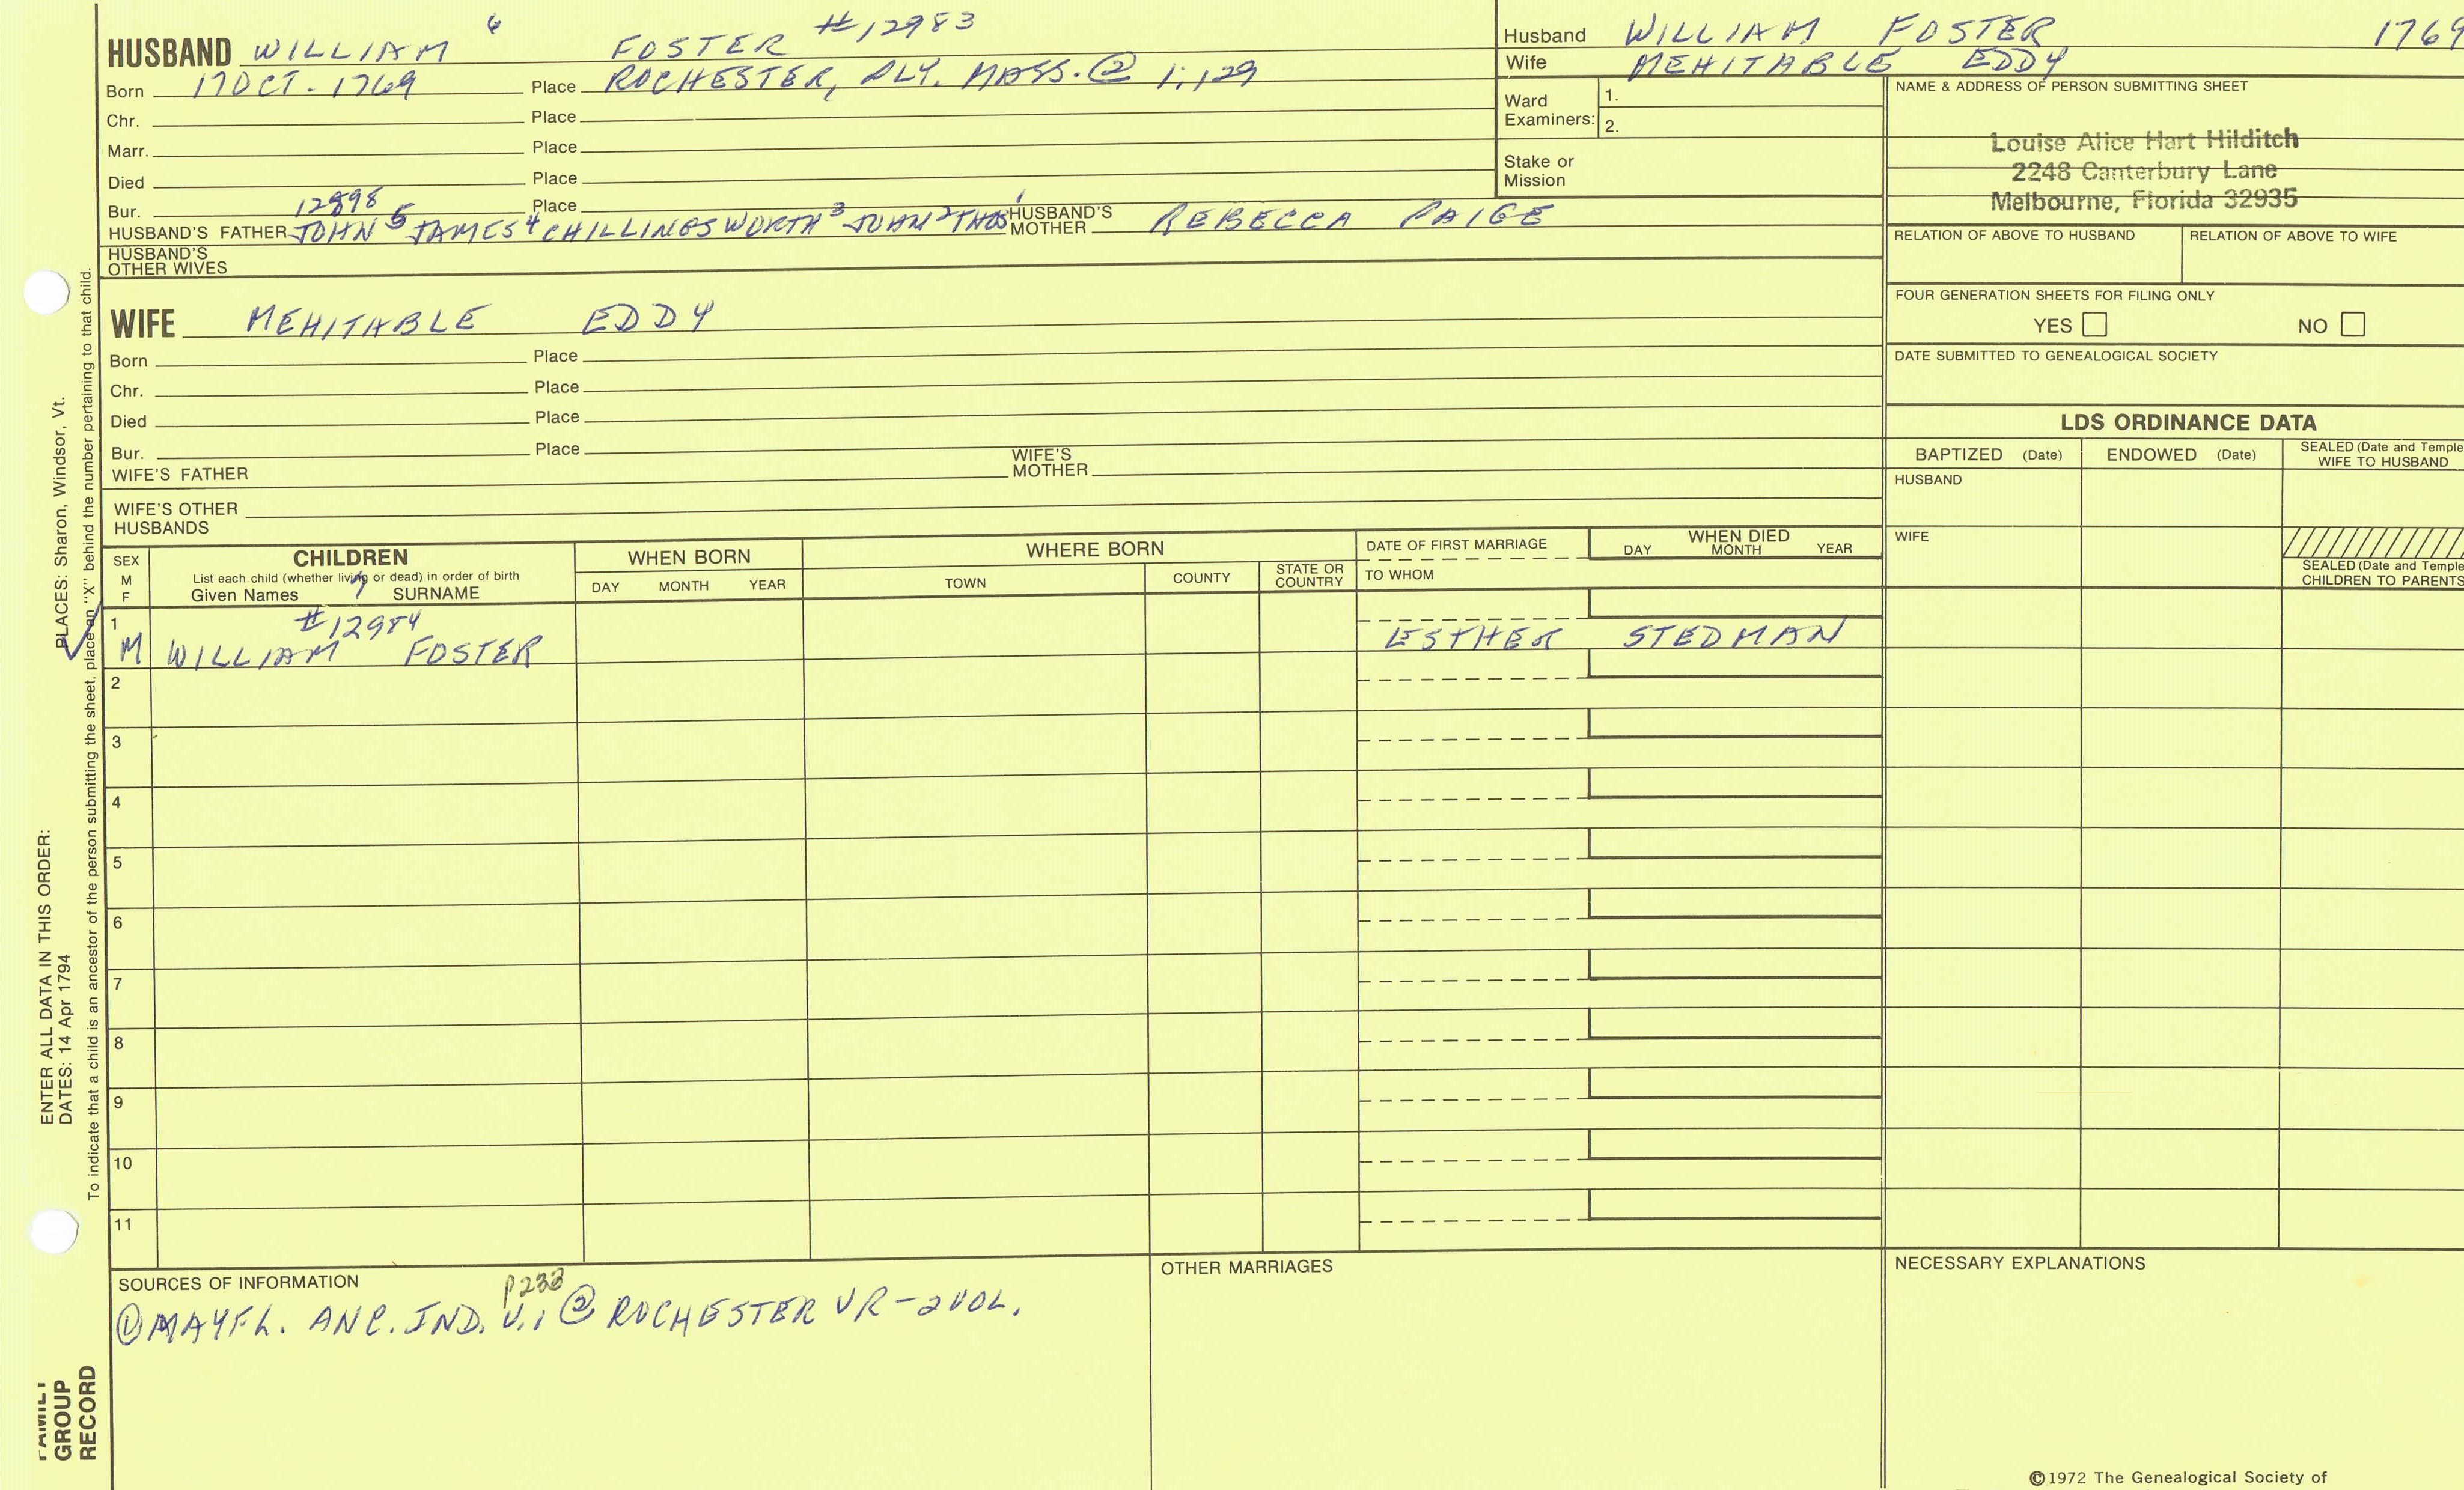 HUSBAND WILLIAM 6 FOSTER #12983
Born 17 OCT. 1769 Place ROCHESTER, PLY. MASS. ② 1;129
Chr. Place
Marr. Place
Died Place
Bur. 12898 Place
HUSBAND'S FATHER JOHN 5 JAMES 4 CHILLINGSWORTH 3 JOHN 2 THOS 1 HUSBAND'S MOTHER REBECCA PAIGE
HUSBAND'S OTHER WIVES
WIFE MEHITABLE EDDY
Born Place
Chr. Place
Died Place
Bur. Place
WIFE'S FATHER WIFE'S MOTHER
WIFE'S OTHER HUSBANDS
Husband WILLIAM FOSTER 1769
Wife MEHITABLE EDDY
Ward Examiners: 1.
2.
Stake or Mission
NAME & ADDRESS OF PERSON SUBMITTING SHEET
Louise Alice Hart Hilditch
2248 Canterbury Lane
Melbourne, Florida 32935
RELATION OF ABOVE TO HUSBAND RELATION OF ABOVE TO WIFE
FOUR GENERATION SHEETS FOR FILING ONLY
YES NO
DATE SUBMITTED TO GENEALOGICAL SOCIETY
LDS ORDINANCE DATA
BAPTIZED (Date) ENDOWED (Date) SEALED (Date and Temple
WIFE TO HUSBAND
HUSBAND
WIFE
SEALED (Date and Temple
CHILDREN TO PARENTS
SEX
M
F
CHILDREN
List each child (whether living or dead) in order of birth
Given Names 7 SURNAME
WHEN BORN
DAY MONTH YEAR
WHERE BORN
TOWN COUNTY STATE OR COUNTRY
DATE OF FIRST MARRIAGE
TO WHOM
WHEN DIED
DAY MONTH YEAR
1 #12984
M WILLIAM FOSTER ESTHER STEDMAN
2
3
4
5
6
7
8
9
10
11
SOURCES OF INFORMATION P233
① MAYFL. ANC. IND. V.1 ② ROCHESTER VR - 2 VOL.
OTHER MARRIAGES
NECESSARY EXPLANATIONS
©1972 The Genealogical Society of
PLACES: Sharon, Windsor, Vt.
ENTER ALL DATA IN THIS ORDER:
DATES: 14 Apr 1794
To indicate that a child is an ancestor of the person submitting the sheet, place an "X" behind the number pertaining to that child.
FAMILY
GROUP
RECORD